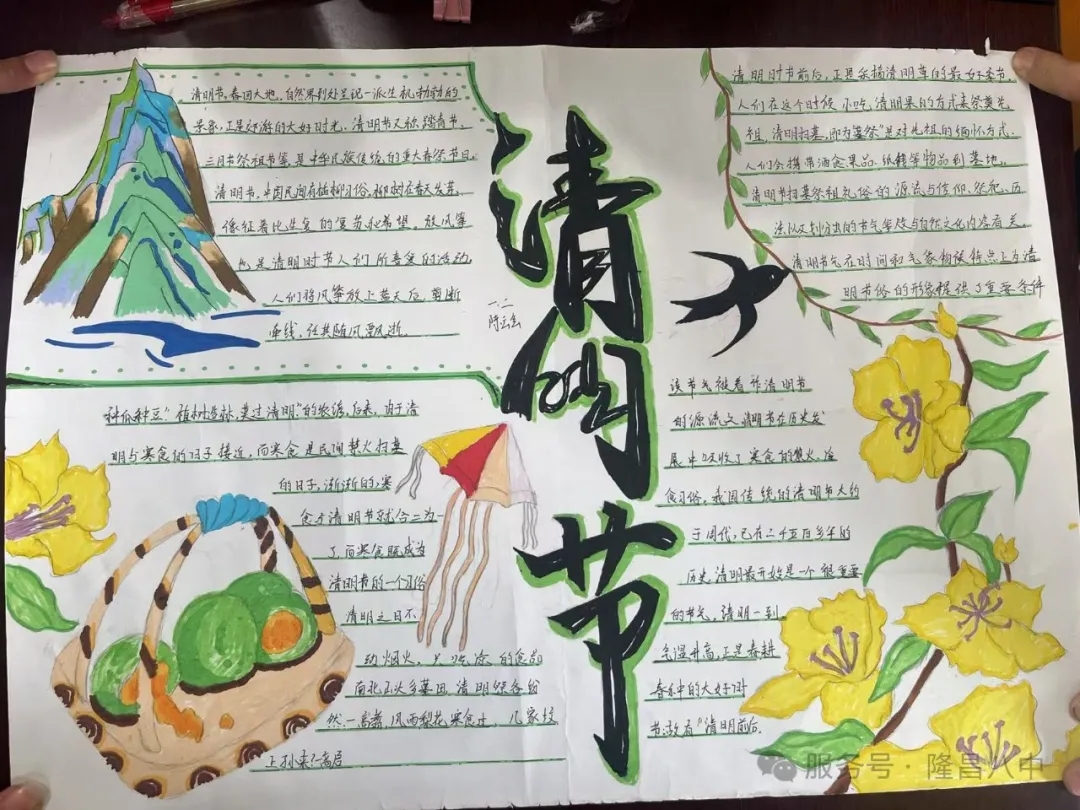 清明节,春回大地,自然界到处呈现一派生机勃勃的
景象,正是郊游的大好时光,清明节又称踏青节,
三月节祭祖节等,是中华民族传统的重大春祭节日。
清明节,中国民间有插柳习俗,柳树在春天发芽,
像征着比生复的复苏和希望。放风筝
也是清明时节人们所喜爱的活动
人们将风筝放上蓝天后,剪断
牵线,任其随风漂逝。
清明节
一.二
种瓜种豆"植树造林,莫过清明"的农谚,后来,由于清
明与寒食的日子接近,而寒食是民间禁火扫墓
的日子,渐渐的,寒
食才清明节就合二为一
了,而寒食既成为
清明节的一个习俗
清明之日不
动烟火,只吃凉的食品
南北山头多墓田,清明祭各纷
然
风雨梨花寒食过,几家坟
上孙来
清明时节前后,正是采摘清明草的最好季节,
人们在这个时候,小吃,清明果的方式来祭奠先
祖,清明扫墓,即为"墓祭"是对先祖的缅怀方式.
人们会携带酒食果品,纸钱等物品到墓地。
清明节扫墓祭祖礼俗的源流与信仰、祭祀、历
法以及划分出的节气等
与自然文化内容有关。
清明节气在时间和气象物候特点上为清
明节俗的形成提供了重要条件
该节气被看作清明节
的源流之一,清明节在历史发
展中吸收了寒食的禁火,冷
食习俗,我国传统的清明节大约
于周代,已有二千五百多年的
历史,清明最开始是一个很重要
的节气,清明一到,
气温升高,正是春耕
春种的大好时
节,故有"清明前后,
服务号·隆昌八中